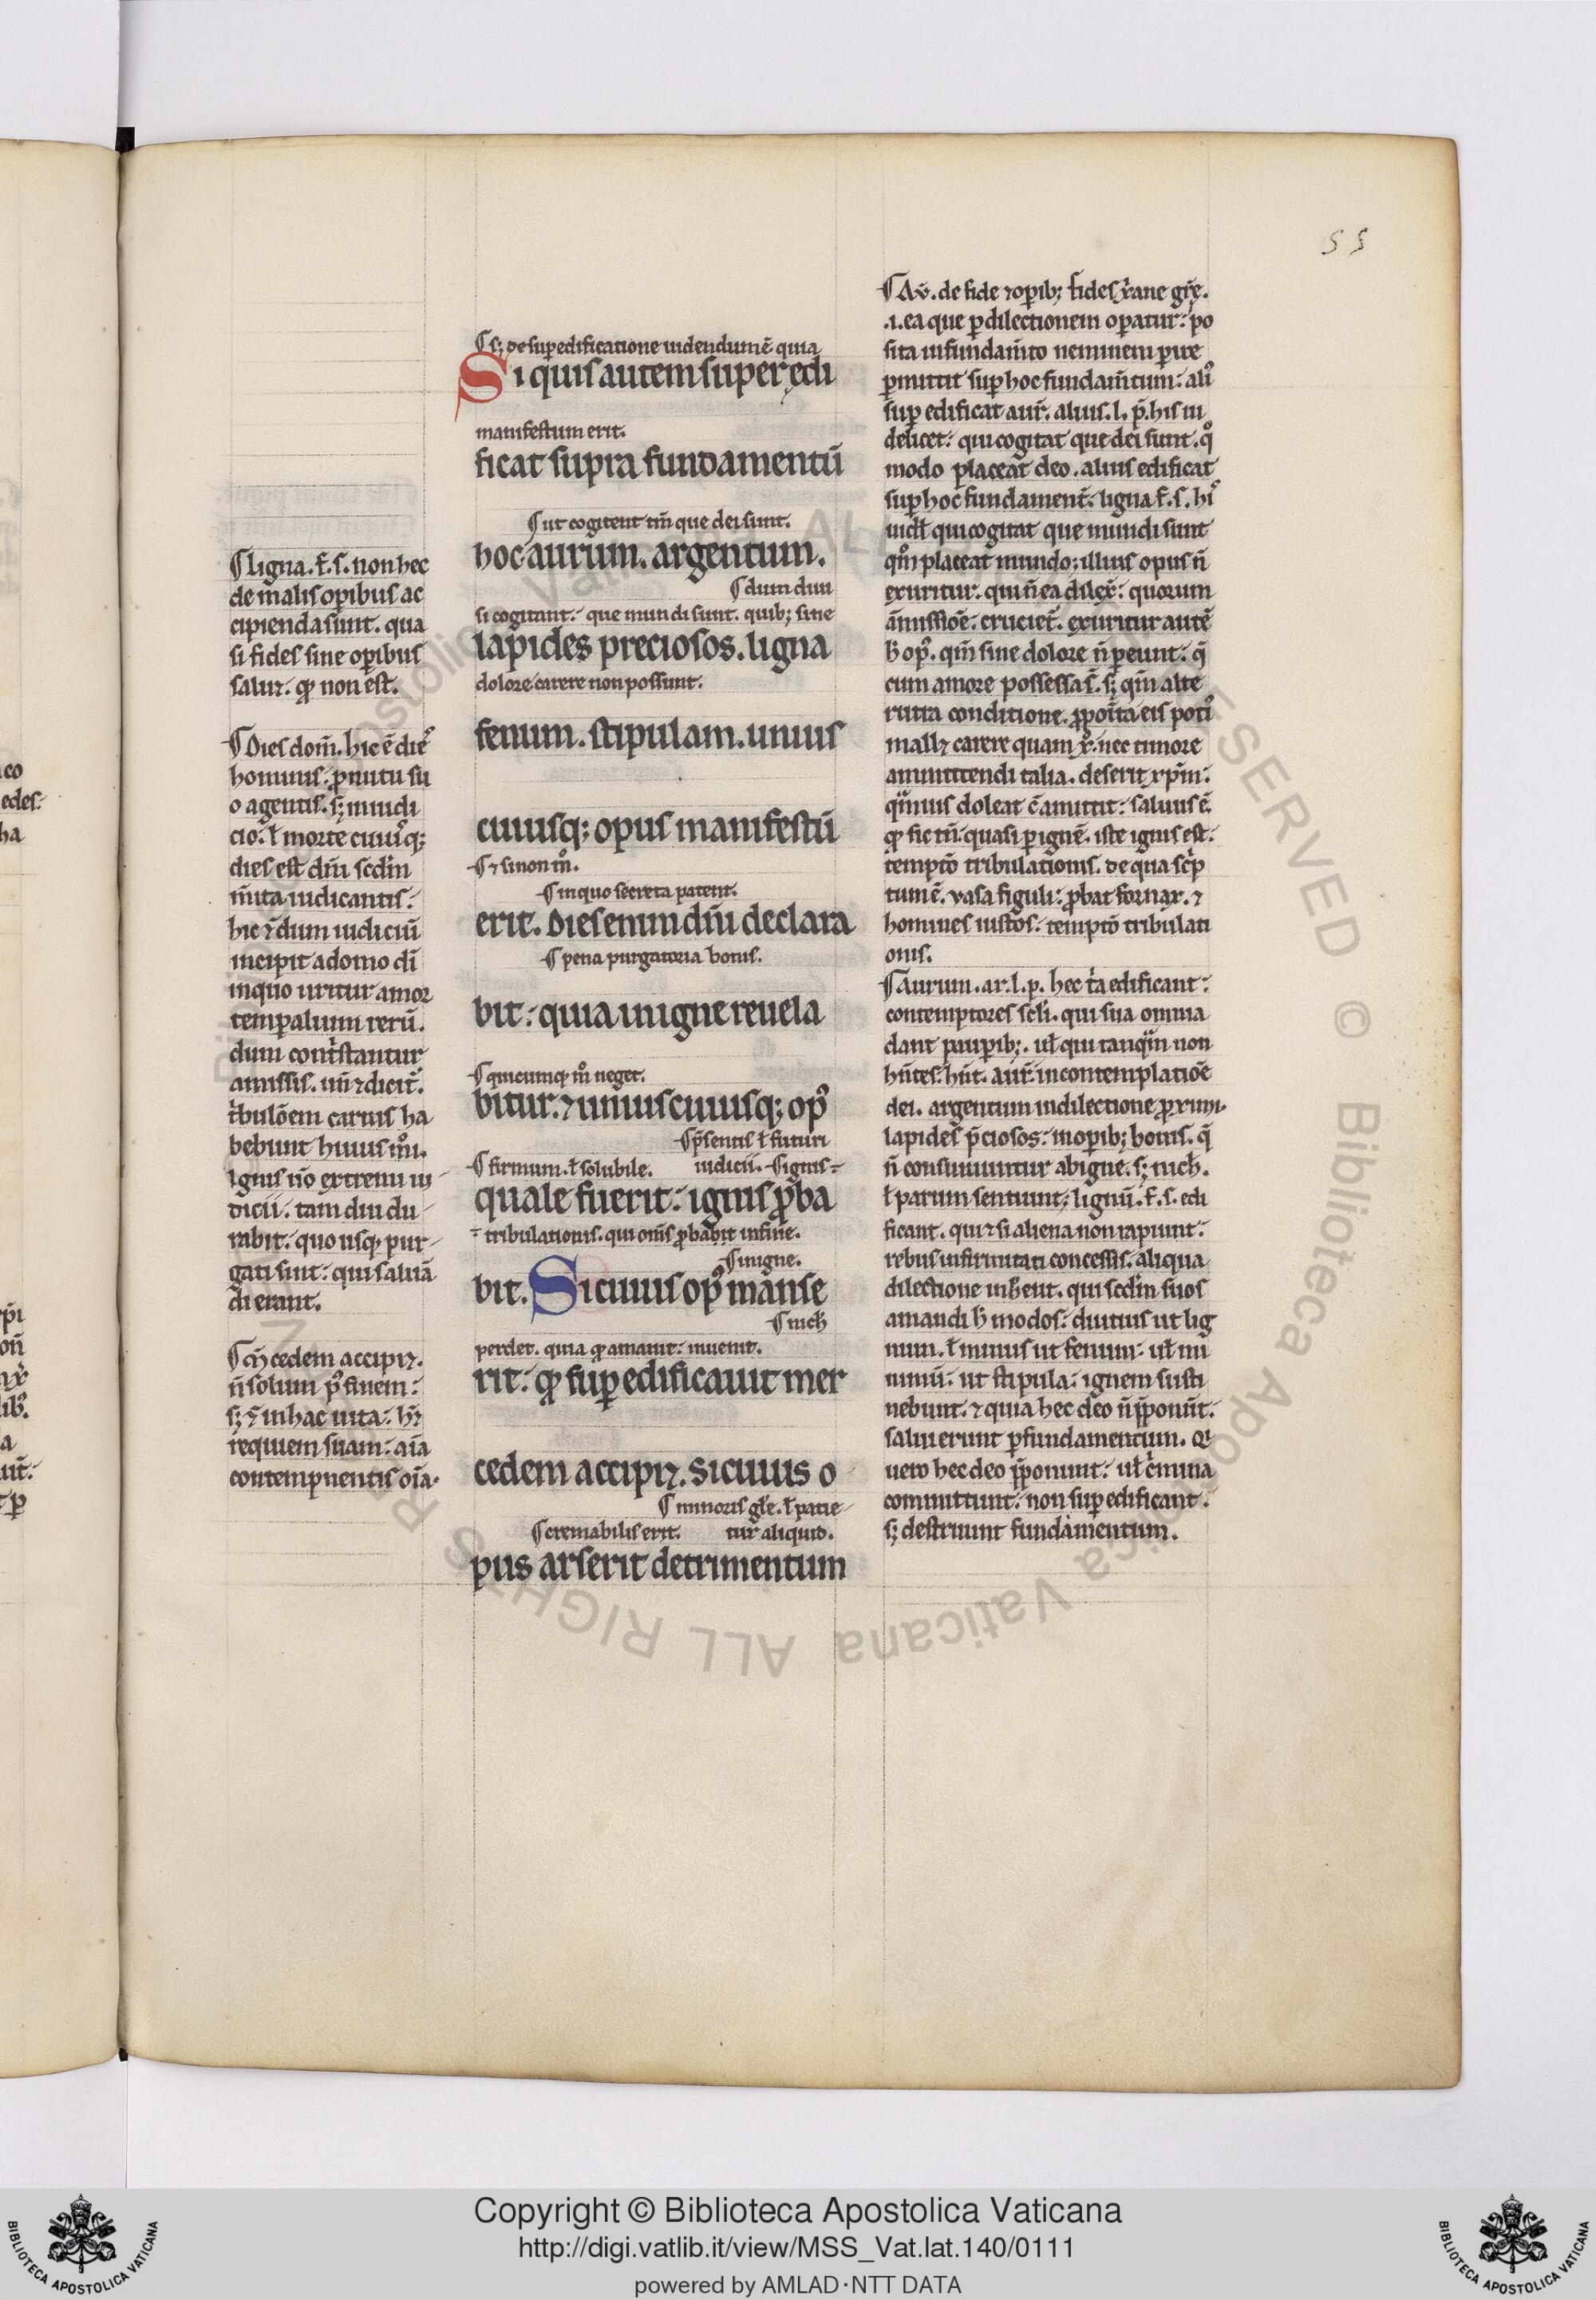 55
¶ ligna. f̄. s̄. non hec
de malis op̲ibus ac
cipienda sunt. qua
si fides sine op̲ibus
saluꝫ. ꝙ non est.
¶ Dies dom̄. hic ē die᷒
hominis. ꝓ nutu su
o agentis. s; in iudi
cio. ł morte cuiusq;
dies est dn̄i scdm̄
m̄ita iudicantis.
hic ⁊ dum iudiciū
incipit a domo dī
in quo uritur amor
temp̲alium rerū.
dum contͥstantur
amissis. uñ ⁊ dicit̄.
tͥbulōem carnis ha
bebunt huius mͦi.
Ignis ūo extremi iu
dicii. tam diu du
rabit. quo usq; pur
gati sint. qui saluā
di erant.
¶ M̄cedem accipiꝫ.
n̄ solum p᷒ finem.
s; ⁊ in hac uita. hꝫ
requiem suam. aīa
contempnentis oīa.
¶ s; de sup̲edificatione uidendum ē quia
Si quis autem superędi
manifestum erit.
ficat supra fundamentū
¶ ut cogitent tm̄ que dei sunt.
hoc aurum. argentum.
¶ dum diui
si cogitant. que mundi sunt. quib; sine
lapides preciosos. ligna
dolore carere non possunt.
fenum. stipulam. unius
cuiusq; opus manifestū
¶ ⁊ si non mͦ.
¶ in quo secreta patent.
erit. Dies enim dn̄i declara
¶ pena purgatoria bonis.
bit. quia in igne reuela
¶ quicumq; mͦ neget.
bitur. ⁊ unius cuiusq; op᷒
¶ p̄sentis ł futuri
¶ firmum. ł solubile. iudicii. ¶ ignis
quale fuerit. ignis ꝓba
tribulationis. qui om̄s ꝓbabit in fine.
¶ in igne.
bit. Si cuius op᷒ manse
¶ nich̄
perdet. quia ꝙ amauit. inuenit.
rit. ꝙ sup̲edificauit mer
cedem accipiꝫ. Si cuius o
¶ minoris glͥe. ł patie
¶ cremabilis erit. tur aliquid.
pus arserit detrimentum
¶ Aū. de fide ⁊ op̲ib; fides xͥane grͣe.
.i. ea que p̲ dilectionem op̲atur. po
sita in fundam̄to neminem p̲ire
p̲mittit sup̲ hoc fundam̄tum. ali᷒
sup̲edificat aur̄. alius. l. p̄. his ui
delicet. qui cogitat que dei sunt. qͦ
modo placeat deo. alius edificat
sup̲ hoc fundament̄. ligna f̄. s̄. hi᷒
uidł qui cogitat que mundi sunt
qͦm placeat mundo; illius opus n̄
exuritur. qui n̄ ea dilex̄. quorum
āmissiōe. cruciet̄. exuritur autē
h̄ op᷒. qm̄ sine dolore n̄ p̲eunt. q̄
cum amore possessa s̄. s; qm̄ alte
rutra conditione. ꝓpoīta eis poti᷒
mallꝫ carere quam xͦ. nec timore
amittendi talia. deserit xp̄m.
qͣmuis doleat cͣ amittit. saluus ē.
ꝙ sic tn̄. quasi p̲ ignē. iste ignis est.
temptō tribulationis. de qua scͥp
tum ē. vasa figuli. ꝓbat fornax. ⁊
homines iustos. temptō tribulati
onis.
¶ Aurum. ar. l. p. hec tͥa edificant.
contemptores sclͥi. qui sua omnia
dant paup̲ib;. uł qui tanqͣm non
hn̄tes. hn̄t. aur̄. in contemplatiōe
dei. argentum in dilectione ꝓximi.
lapides p̄ciosos. in op̲ib; bonis. q̄
n̄ consumuntur ab igne. s; nich̄.
ł parum sentiunt; lignū. f̄. s. edi
ficant. qui ⁊ si aliena non rapiunt.
rebus infirmitati concessis. aliqua
dilectione inh̄ent. qui scdm̄ suos
amandi h̄ modos. diutius ut lig
num. ł minus ut fenum. uł mi
nimū. ut stipula. ignem susti
nebunt. ⁊ quia hec deo n̄ p̄ponūt.
salui erunt p̲ fundamentum. Qi
uero hec deo p̄ponunt. uł cͥmina
committunt. non sup̲edificant.
s; destruunt fundamentum.
Copyright © Biblioteca Apostolica Vaticana
http://digi.vatlib.it/view/MSS_Vat.lat.140/0111
powered by AMLAD·NTT DATA
BIBLIOTECA APOSTOLICA VATICANA
BIBLIOTECA APOSTOLICA VATICANA